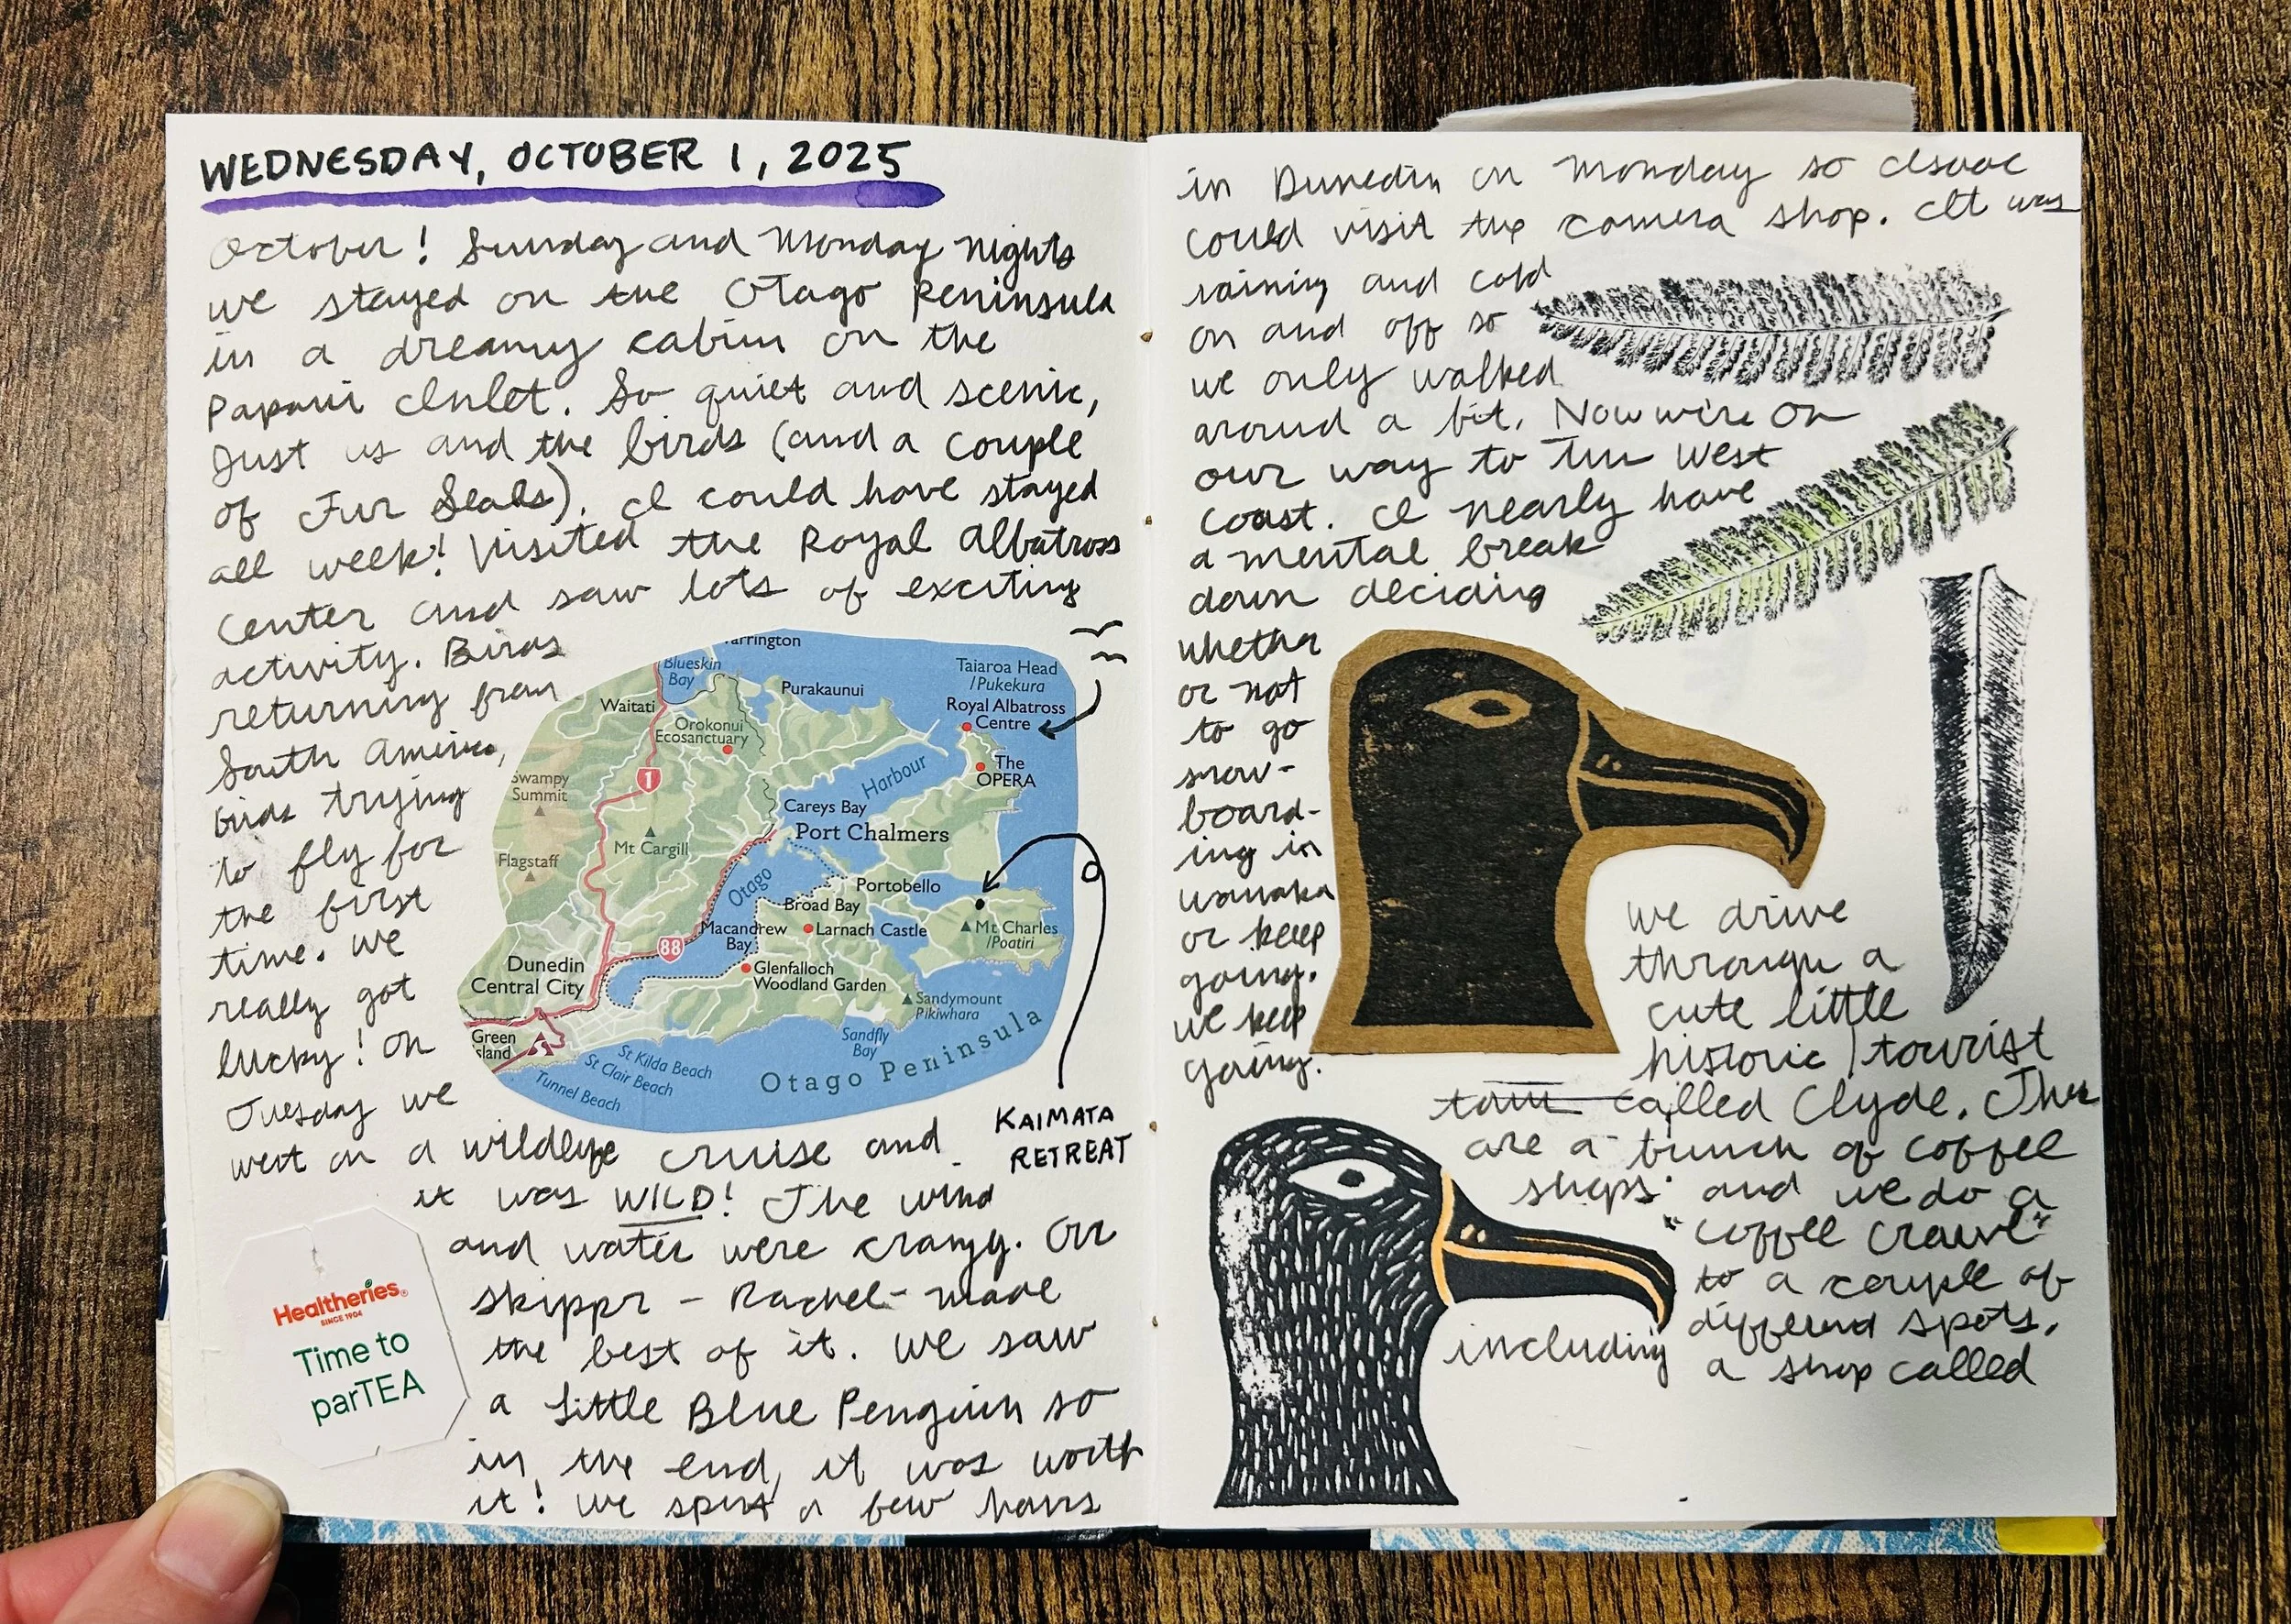 WEDNESDAY, OCTOBER 1, 2025
October! Sunday and Monday nights
we stayed on the Otago Peninsula
in a dreamy cabin on the
Papanui Inlet. So quiet and scenic,
Just us and the birds (and a couple
of Fur Seals). I could have stayed
all week! Visited the Royal Albatross
Center and saw lots of exciting
activity. Birds
returning from
South America,
birds trying
to fly for
the first
time. We
really got
lucky! On
Tuesday we
went on a wildlife cruise and
it was WILD! The wind
and water were crazy. Our
skippr - Rachel - made
the best of it. We saw
a Little Blue Penguin so
in the end, it was worth
it! We spent a few hours
Warrington
Blueskin
Bay
Waitati
Purakaunui
Taiaroa Head
/Pukekura
Royal Albatross
Centre
Orokonui
Ecosanctuary
The
OPERA
Harbour
Swampy
Summit
1
Careys Bay
Port Chalmers
Mt Cargill
Flagstaff
Otago
Portobello
Broad Bay
Macandrew
Bay
Larnach Castle
Mt Charles
/Poatiri
88
Dunedin
Central City
Glenfalloch
Woodland Garden
Sandymount
Pikiwhara
Green
Island
Sandfly
Bay
St Kilda Beach
St Clair Beach
Tunnel Beach
Otago Peninsula
KAIMATA
RETREAT
Healtheries®
SINCE 1904
Time to
parTEA
in Dunedin on Monday so Isaac
could visit the camera shop. It was
rainin and cold
on and off so
we only walked
around a bit. Now we're on
our way to the West
Coast. I nearly have
a mental break
down deciding
whether
or not
to go
snow-
board-
ing in
wanaka
or keep
going.
we keep
going.
we drive
through a
cute little
historic/tourist
town called Clyde. There
are a bunch of coffee
shops and we do a
"coffee crawl"
to a couple of
different spots,
including a shop called